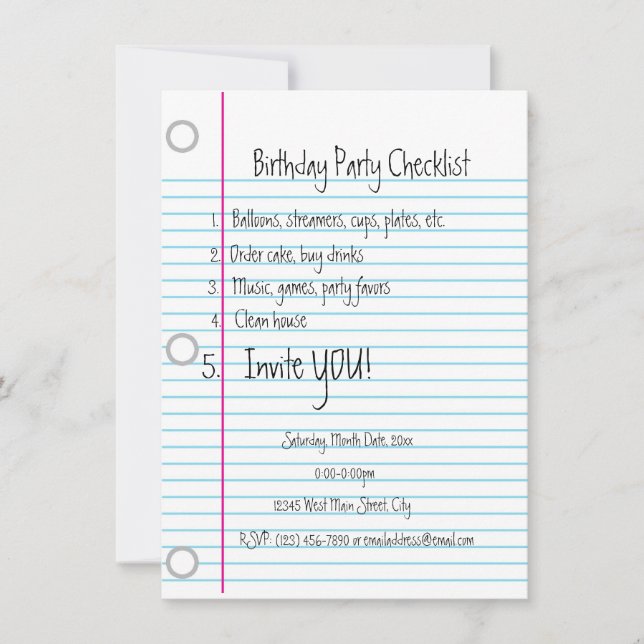 Birthday Party Checklist
1. Balloons, streamers, cups, plates, etc.
2. Order cake, buy drinks
3. Music, games, party favors
4. Clean house
5. Invite YOU!
Saturday, Month Date, 20xx
0:00-0:00pm
12345 West Main Street, City
RSVP: (123) 456-7890 or emailaddress@email.com